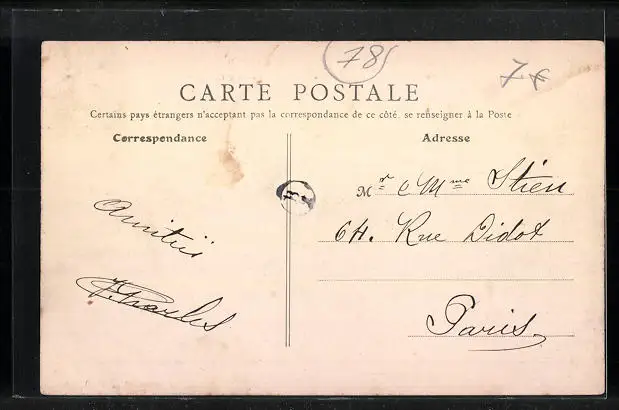 78
7€
CARTE POSTALE
Certains pays étrangers n'acceptant pas la correspondance de ce côté, se renseigner à la Poste
Correspondance
Adresse
Mr & Mme Stien
64. Rue Didot
Paris
Amitiés
Charles